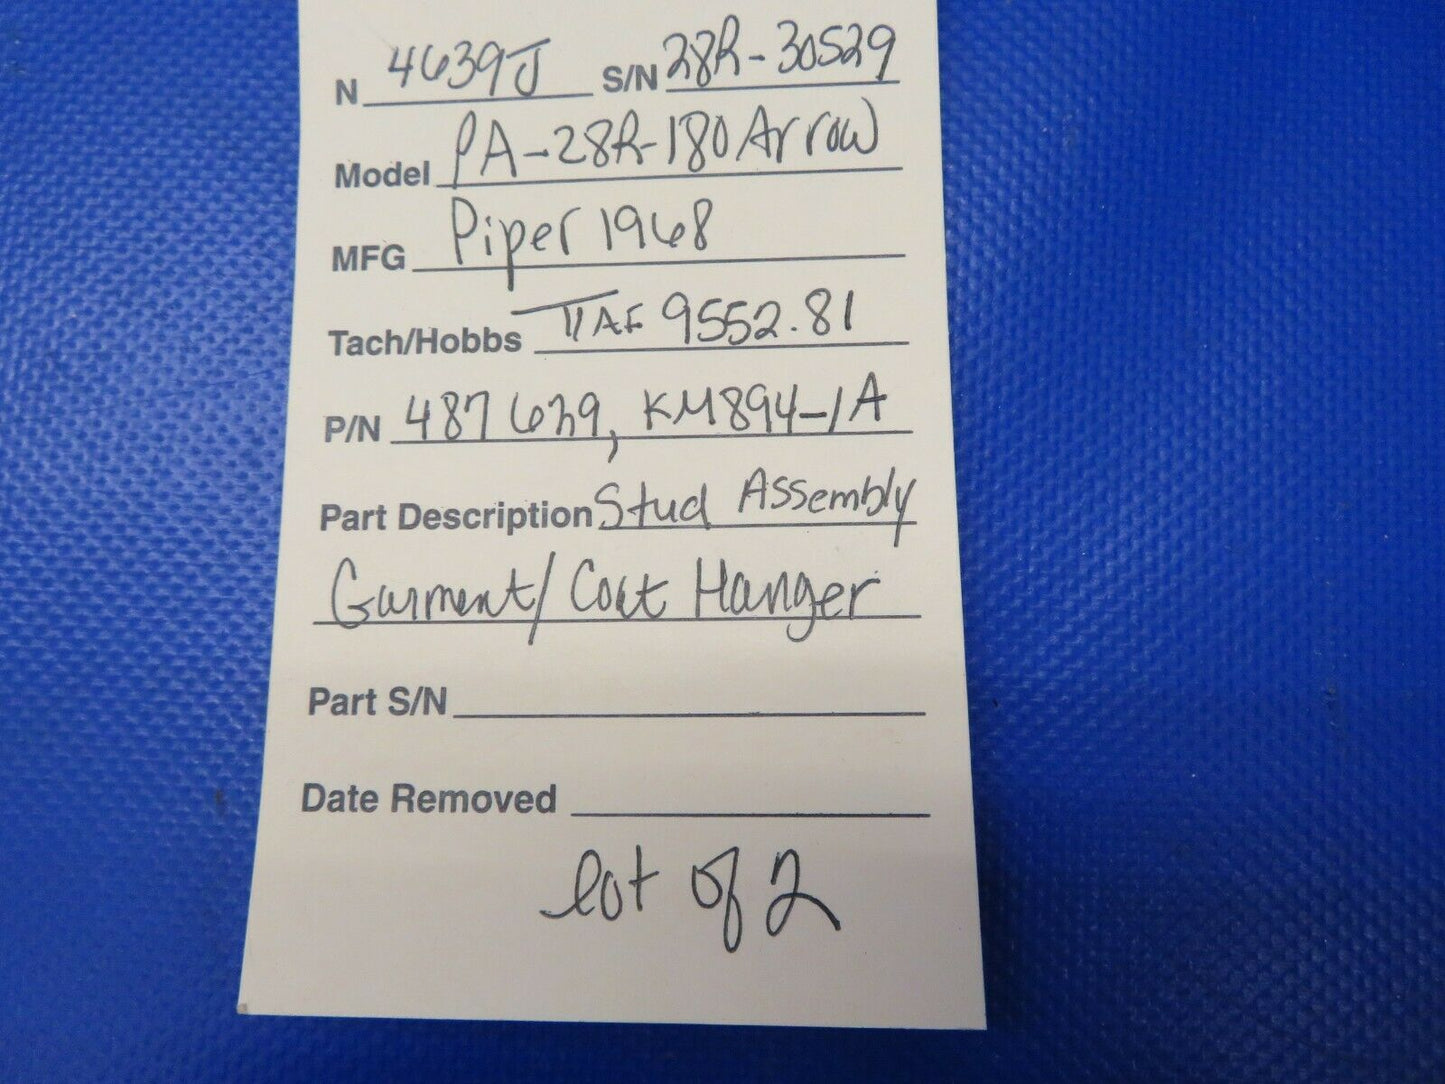 N 4639J S/N 28R-30529
Model PA-28R-180 Arrow
MFG Piper 1968
Tach/Hobbs TTAF 9552.81
P/N 487 629, KM894-1A
Part Description Stud Assembly
Garment/Coat Hanger
Part S/N
Date Removed
lot of 2